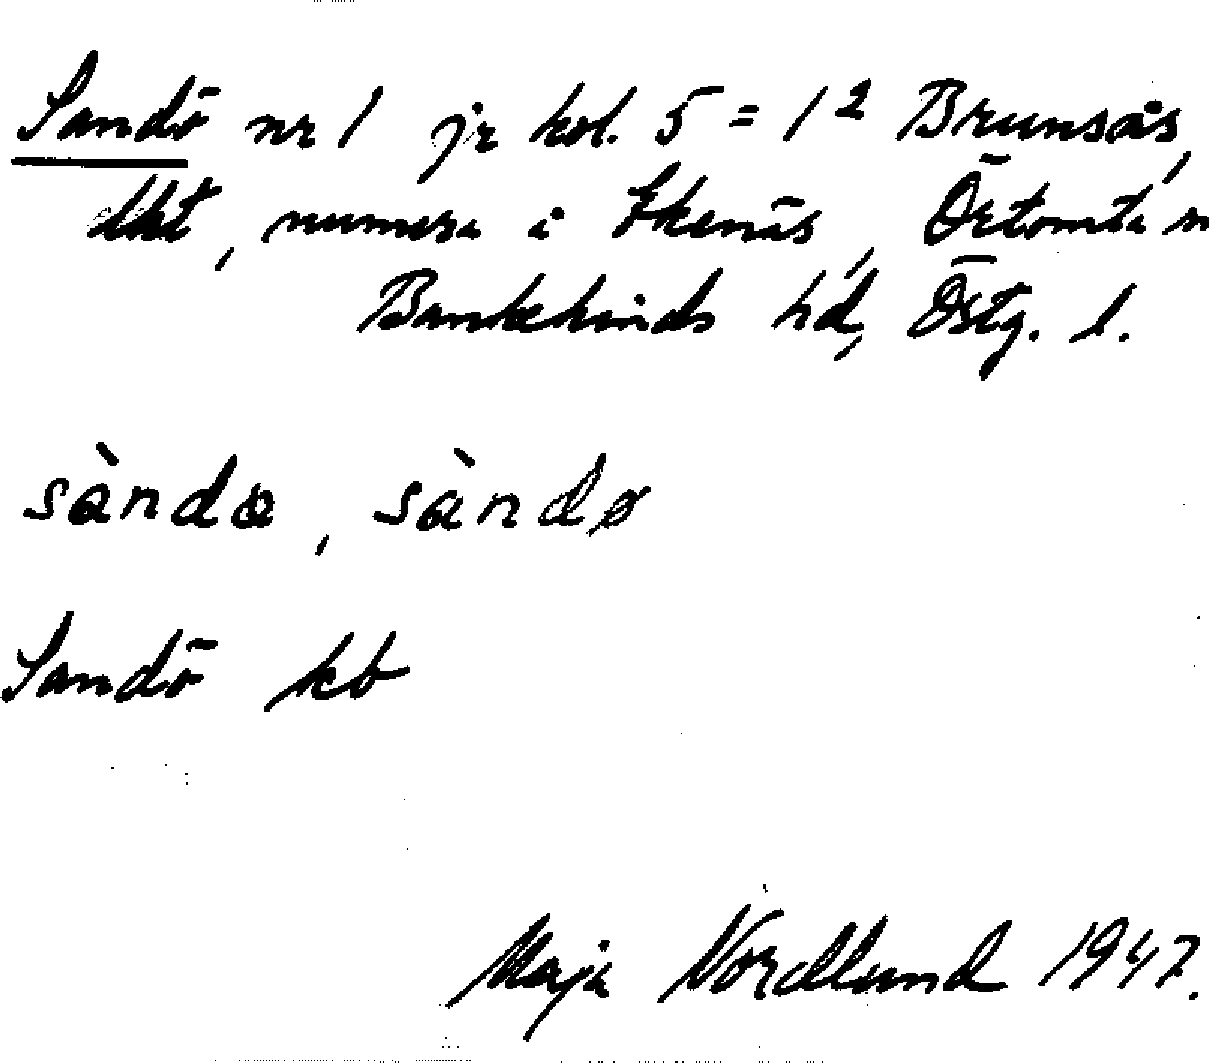 Sandö nr 1 jr kol. 5 = 1² Brunsås,
dht, numera i Ekenäs, Örtomta sn
Bankekinds hd, Östg. l.
sàndə, sàndø
Sandö kb
Maja Nordlund 1947.